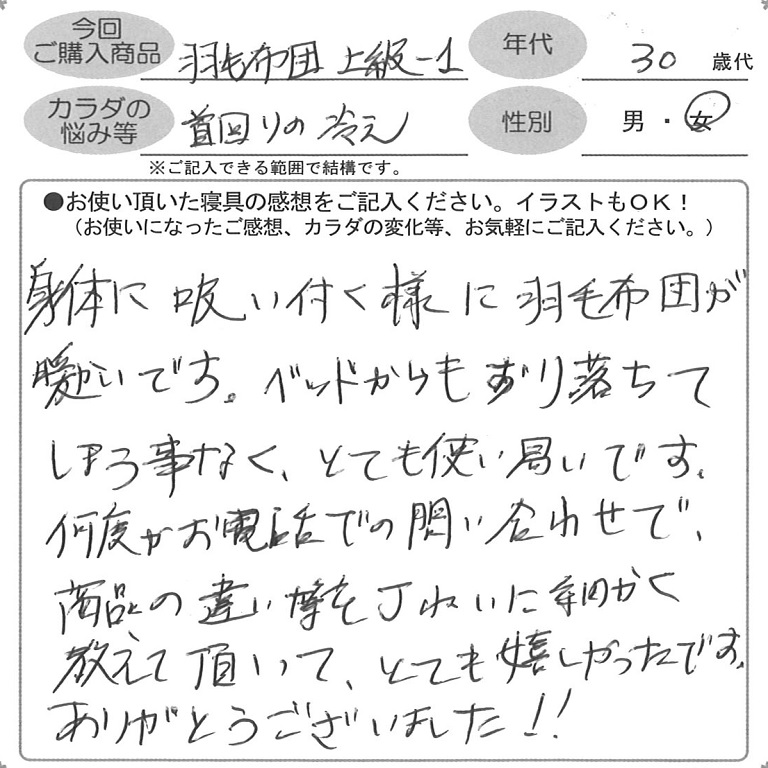 今回
ご購入商品
羽毛布団 上級-1
年代
30 歳代
カラダの
悩み等
首回りの冷え
性別
男・女
※ご記入できる範囲で結構です。
●お使い頂いた寝具の感想をご記入ください。イラストもOK！
（お使いになったご感想、カラダの変化等、お気軽にご記入ください。）
身体に吸い付く様に羽毛布団が
暖かいです。ベッドからもずり落ちて
しまう事なく、とても使い易いです。
何度かお電話での問い合わせで、
商品の違い等を丁ねいに細かく
教えて頂いて、とても嬉しかったです。
ありがとうございました!!